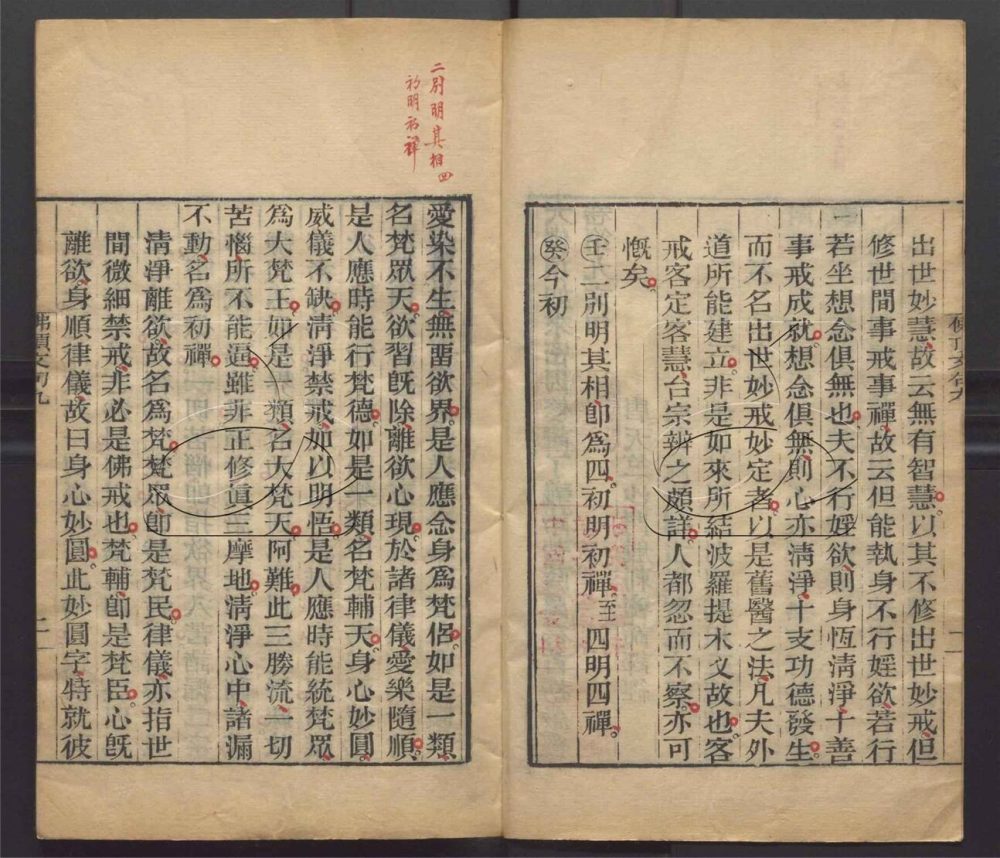 出世妙慧。故云無有智慧。以其不修出世妙戒。但
修世間事戒事禪。故云但能執身不行婬欲。若行
若坐想念俱無也。夫不行婬欲。則身恆清淨。十善
事戒成就。想念俱無。則心亦清淨。十支功德發生。
而不名出世妙戒妙定者。以是舊醫之法。凡夫外
道所能建立。非是如來所結波羅提木叉故也。客
戒客定客慧。台宗辨之頗詳。人都忽而不察。亦可
慨矣。
壬二別明其相即為四。初明初禪。至四明四禪。
癸今初
二別明其相四
初明初禪
愛染不生。無畱欲界。是人應念身爲梵侶。如是一類
名梵眾天。欲習既除。離欲心現。於諸律儀愛樂隨順。
是人應時能行梵德。如是一類。名梵輔天。身心妙圓。
威儀不缺。清淨禁戒。加以明悟。是人應時能統梵眾。
爲大梵王。如是一類。名大梵天。阿難。此三勝流。一切
苦惱所不能逼。雖非正修眞三摩地。清淨心中。諸漏
不動。名爲初禪。
清淨離欲。故名爲梵。梵眾即是梵民。律儀亦指世
間微細禁戒。非必是佛戒也。梵輔即是梵臣。心既
離欲。身順律儀。故曰身心妙圓。此妙圓字。特就彼
佛頂文句九
二